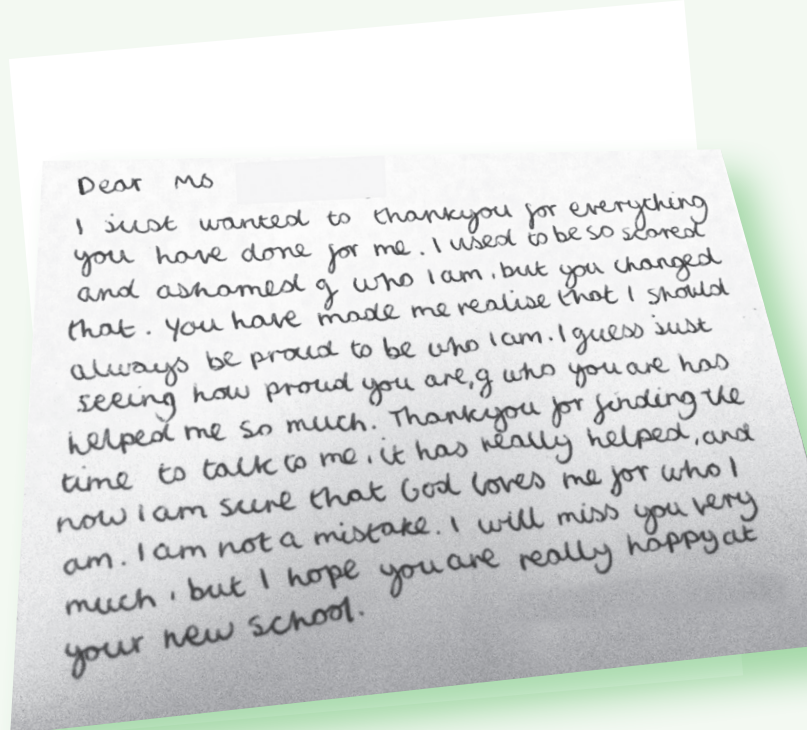 Dear Ms
I just wanted to thankyou for everything
you have done for me. I used to be so scared
and ashamed of who I am, but you changed
that. You have made me realise that I should
always be proud to be who I am. I guess just
seeing how proud you are, of who you are has
helped me so much. Thankyou for finding the
time to talk to me, it has really helped, and
now I am sure that God loves me for who I
am. I am not a mistake. I will miss you very
much, but I hope you are really happy at
your new school.